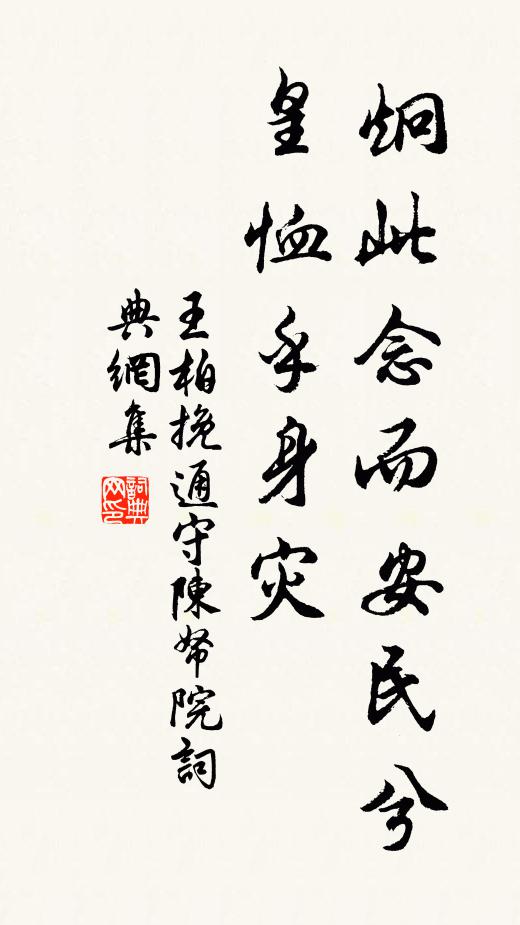 炯此念而安民兮
皇恤乎身灾
王柏挽通守陳帑院詞
典網集
詞典网印